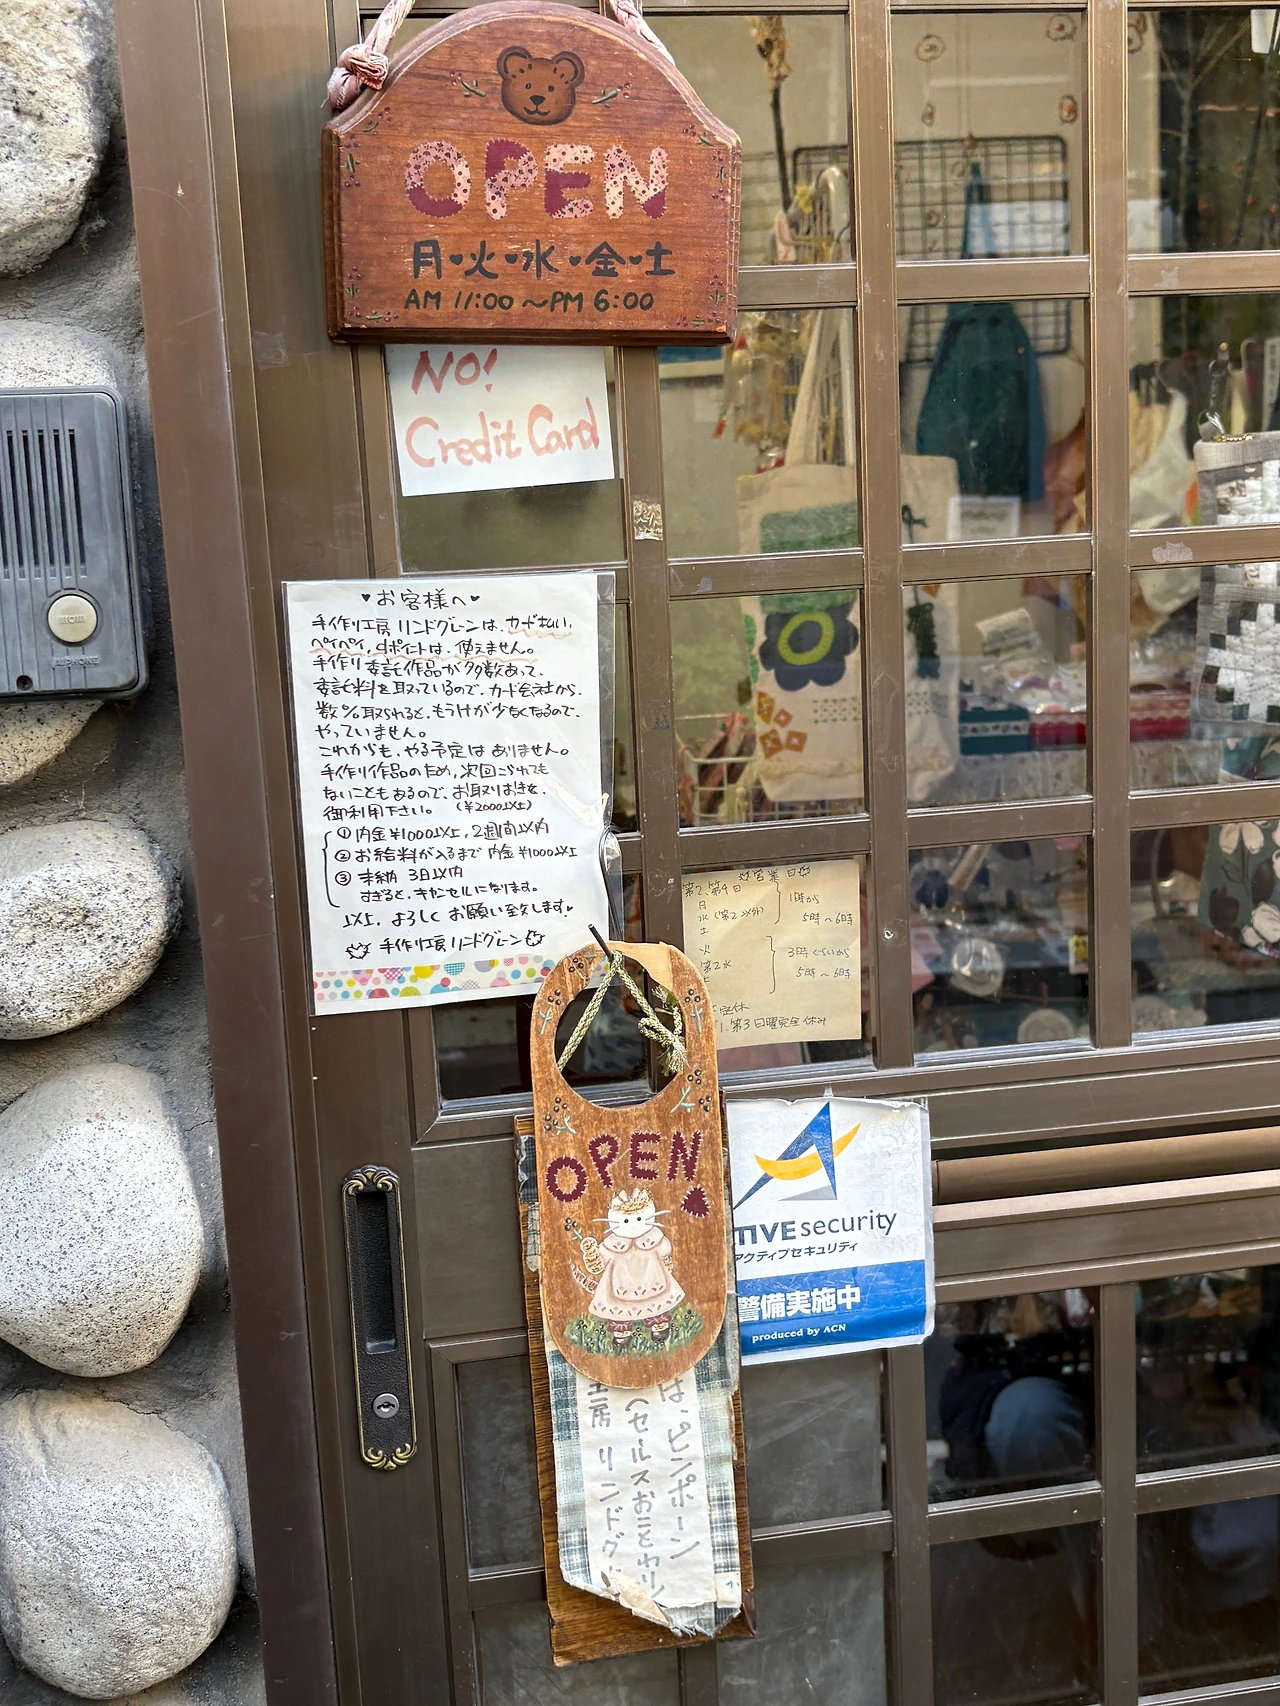 OPEN
月・火・水・金・土
AM 11:00 〜PM 6:00
NO!
Credit Card
♥お客様へ♥
手作り工房 リンドグレーンは、カード払い、
ペイペイ、dポイントは、使えません。
手作り委託作品が多数あって、
委託料を取っているので、カード会社から、
数%取られると、もうけが少なくなるので、
やっていません。
これからも、やる予定はありません。
手作り作品のため、次回こられても
ないこともあるので、お取りおきを、
御利用下さい。 (¥2000以上)
① 内金¥1000以上、2週間以内
② お給料が入るまで 内金¥1000以上
③ 未納 3日以内
すぎると、キャンセルになります。
以上、よろしくお願い致します♥
手作り工房 リンドグレーン
営業日
第2、第4日
日
水(第2以外)
土
1時から
5時〜6時
火
第2水
3時ぐらいから
5時〜6時
定休
第3日曜完全休み
OPEN
TIVE security
アクティブセキュリティ
警備実施中
produced by ACN
は、ピンポーン
へセルスおことわり
工房 リンドグ
AIPHONE